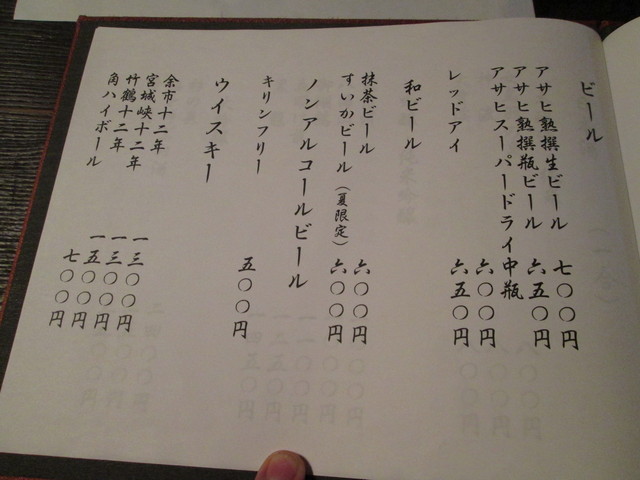 ビール
アサヒ熟撰生ビール 七〇〇円
アサヒ熟撰瓶ビール 六五〇円
アサヒスーパードライ中瓶 六〇〇円
レッドアイ 六五〇円
和ビール
抹茶ビール 六〇〇円
すいかビール(夏限定) 六〇〇円
ノンアルコールビール
キリンフリー 五〇〇円
ウイスキー
余市十二年 一三〇〇円
宮城峡十二年 一三〇〇円
竹鶴十二年 一五〇〇円
角ハイボール 七〇〇円